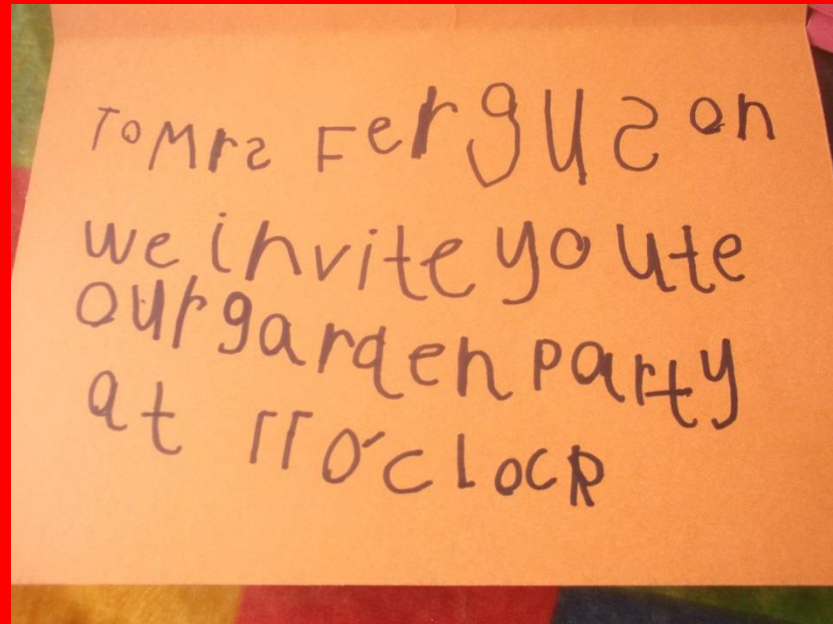 To Mrs Ferguson
we invite you te
our garden party
at 11 o'clock